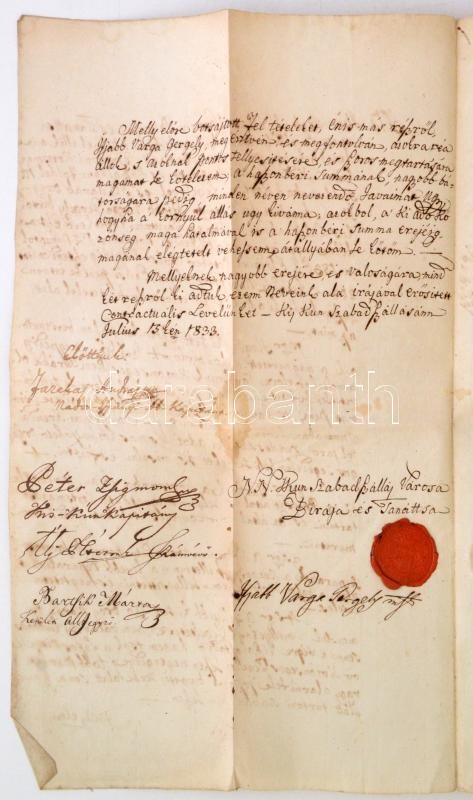 Melly előre botsájtott Fel tételeket, én is más részről
Ifjabb Varga Gergely, megértvén, és megfontolván, arra rea
állok, s azoknak pontos tellyesítésére, és szoros megtartására
magamat le kötelezem, a haszonbéri Summának, nagyobb bá-
torságára pedig minden néven nevezendő Javaimat úgy,
hogyha a környűl állás úgy kivánná, azokból, a Ki adó Kö
zönség maga hatalmával is a haszonbéri Summa erejéig
magának elégtételt vehessen által lyában le kötöm. —
Mellyeknek nagyobb erejére és valóságára mind
két részről ki adtuk ezen Neveink alá írásával erősített
Contractualis Levelünket — Költ Kun Szabad Szállásonn
Julius 15kén 1833.
Előttünk:
Péter Zsigmond
Kis-Kun Kapitány
N. N. Kun Szabad Szállás Városa
Birája és Tanáttsa
Bartsik Márton
Ifjabb Varga Gergely mpr
darabanth